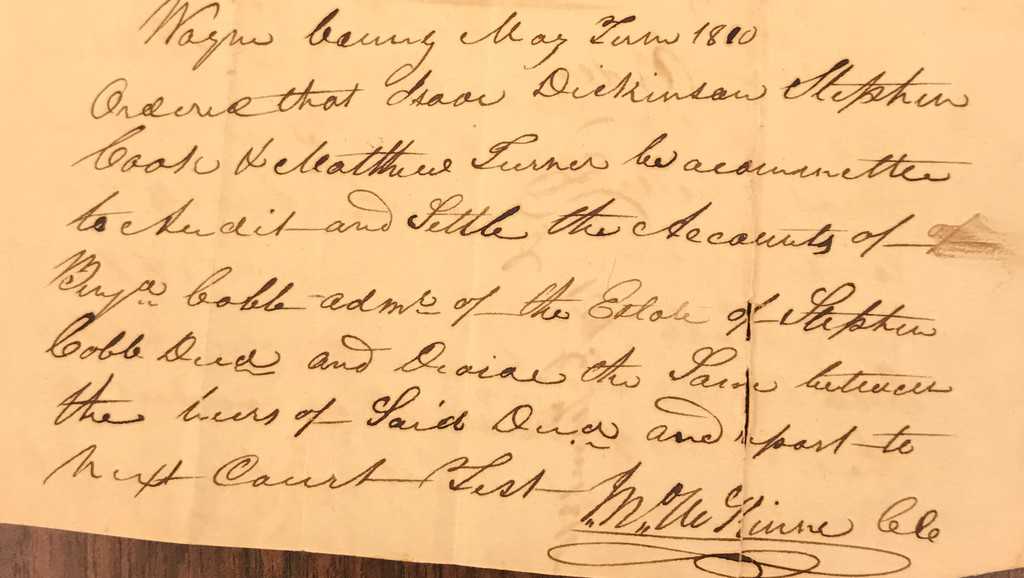 Wayne County May Term 1810
Ordered that Isaac Dickinson Stephen
Cook & Matthew Turner be acommettee
to Audit and Settle the Accounts of
Benja Cobb admr of the Estate of Stephen
Cobb Decd and Devide the Same between
the heers of Said Decd and report to
next Court Test McKinne CCC